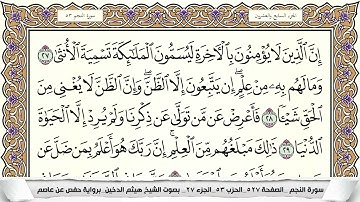 سورة النجم ٥٣
الجزء السابع والعشرون
إِنَّ ٱلَّذِينَ لَا يُؤْمِنُونَ بِٱلْـَٔاخِرَةِ لَيُسَمُّونَ ٱلْمَلَـٰٓئِكَةَ تَسْمِيَةَ ٱلْأُنثَىٰ ٢٧
وَمَا لَهُم بِهِۦ مِنْ عِلْمٍ ۖ إِن يَتَّبِعُونَ إِلَّا ٱلظَّنَّ ۖ وَإِنَّ ٱلظَّنَّ لَا يُغْنِى مِنَ
ٱلْحَقِّ شَيْـًٔا ٢٨ فَأَعْرِضْ عَن مَّن تَوَلَّىٰ عَن ذِكْرِنَا وَلَمْ يُرِدْ إِلَّا ٱلْحَيَوٰةَ
ٱلدُّنْيَا ٢٩ ذَٰلِكَ مَبْلَغُهُم مِّنَ ٱلْعِلْمِ ۚ إِنَّ رَبَّكَ هُوَ أَعْلَمُ بِمَن ضَلَّ عَن
سورة النجم _ الصفحة ٥٢٧ _ الحزب ٥٣ _ الجزء ٢٧ _ بصوت الشيخ هيثم الدخين _ برواية حفص عن عاصم